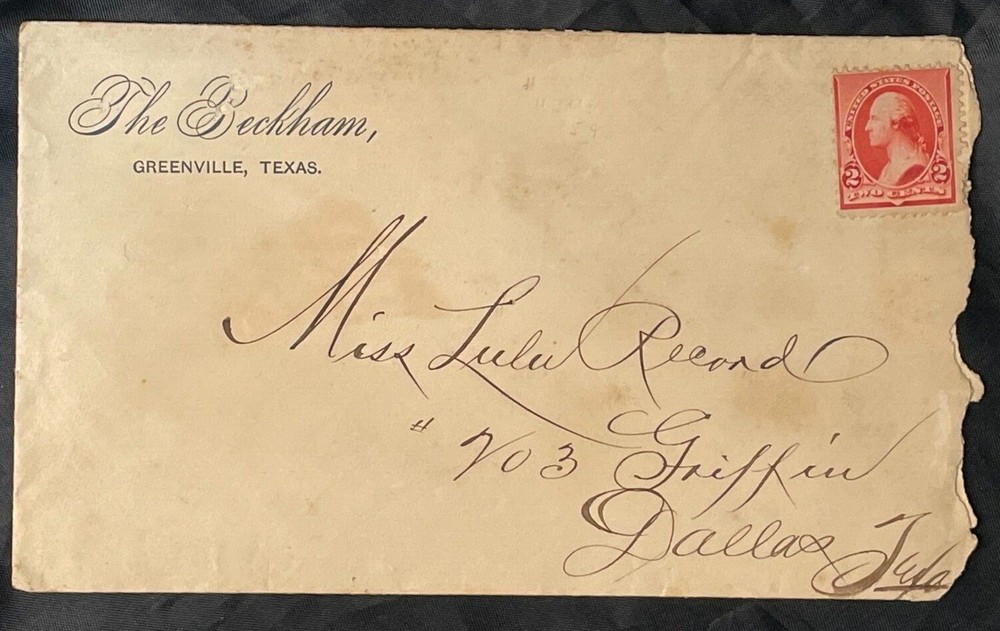 The Beckham,
GREENVILLE, TEXAS.
UNITED STATES POSTAGE
2 2
TWO CENTS
Miss Lulu Record
# 703 Griffin
Dallas